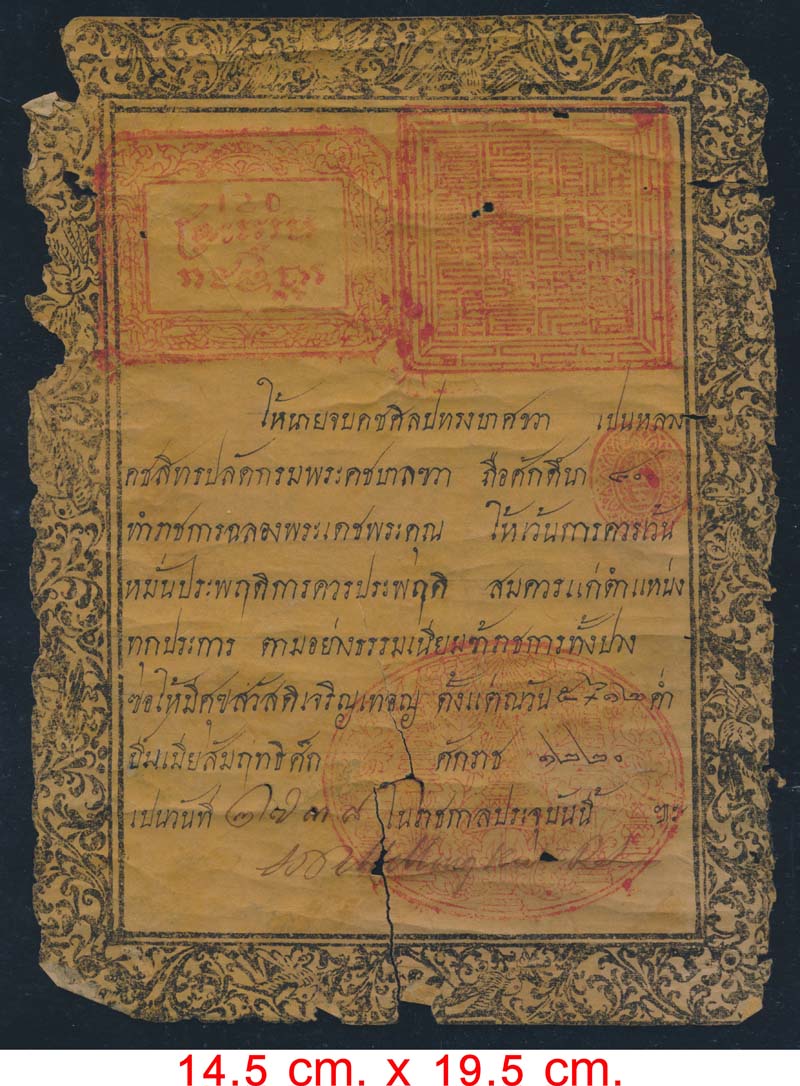 ให้นายจบคชศิลปทรงบาศขวา เปนหลวง
คชสิทรปลัดกรมพระคชบาลขวา ถือศักดินา ๘๐๐
ทำราชการฉลองพระเดชพระคุณ ให้เว้นการควรเว้น
หมั่นประพฤติการควรประพฤติ สมควรแก่ตำแหน่ง
ทุกประการ ตามอย่างธรรมเนียมข้าราชการทั้งปวง
ขอให้มีศุขสวัสดิเจริญเทอญ ตั้งแต่ณวัน ค่ำ
ปีมเมียสัมฤทธิศก ศักราช ๑๒๒๐
เปนวันที่ ในราชกาลประจุบันนี้
14.5 cm. x 19.5 cm.